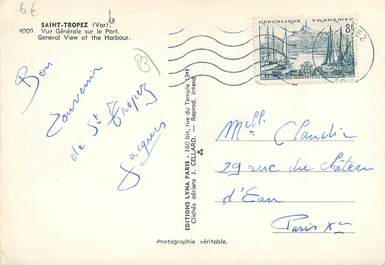 6€
SAINT-TROPEZ (Var)
4009 Vue Générale sur le Port.
General View of the Harbour.
Bon
Souvenir
de St Tropez
Jacques
EDITIONS LYNA PARIS - 160 bis, rue du Temple (3e)
Clichés aériens J. CELLARD. — Reprod. interd.
Photographie véritable.
RÉPUBLIQUE FRANÇAISE
8F
Mell. Claudie
29 rue du Château
d'Eau
Paris Xe